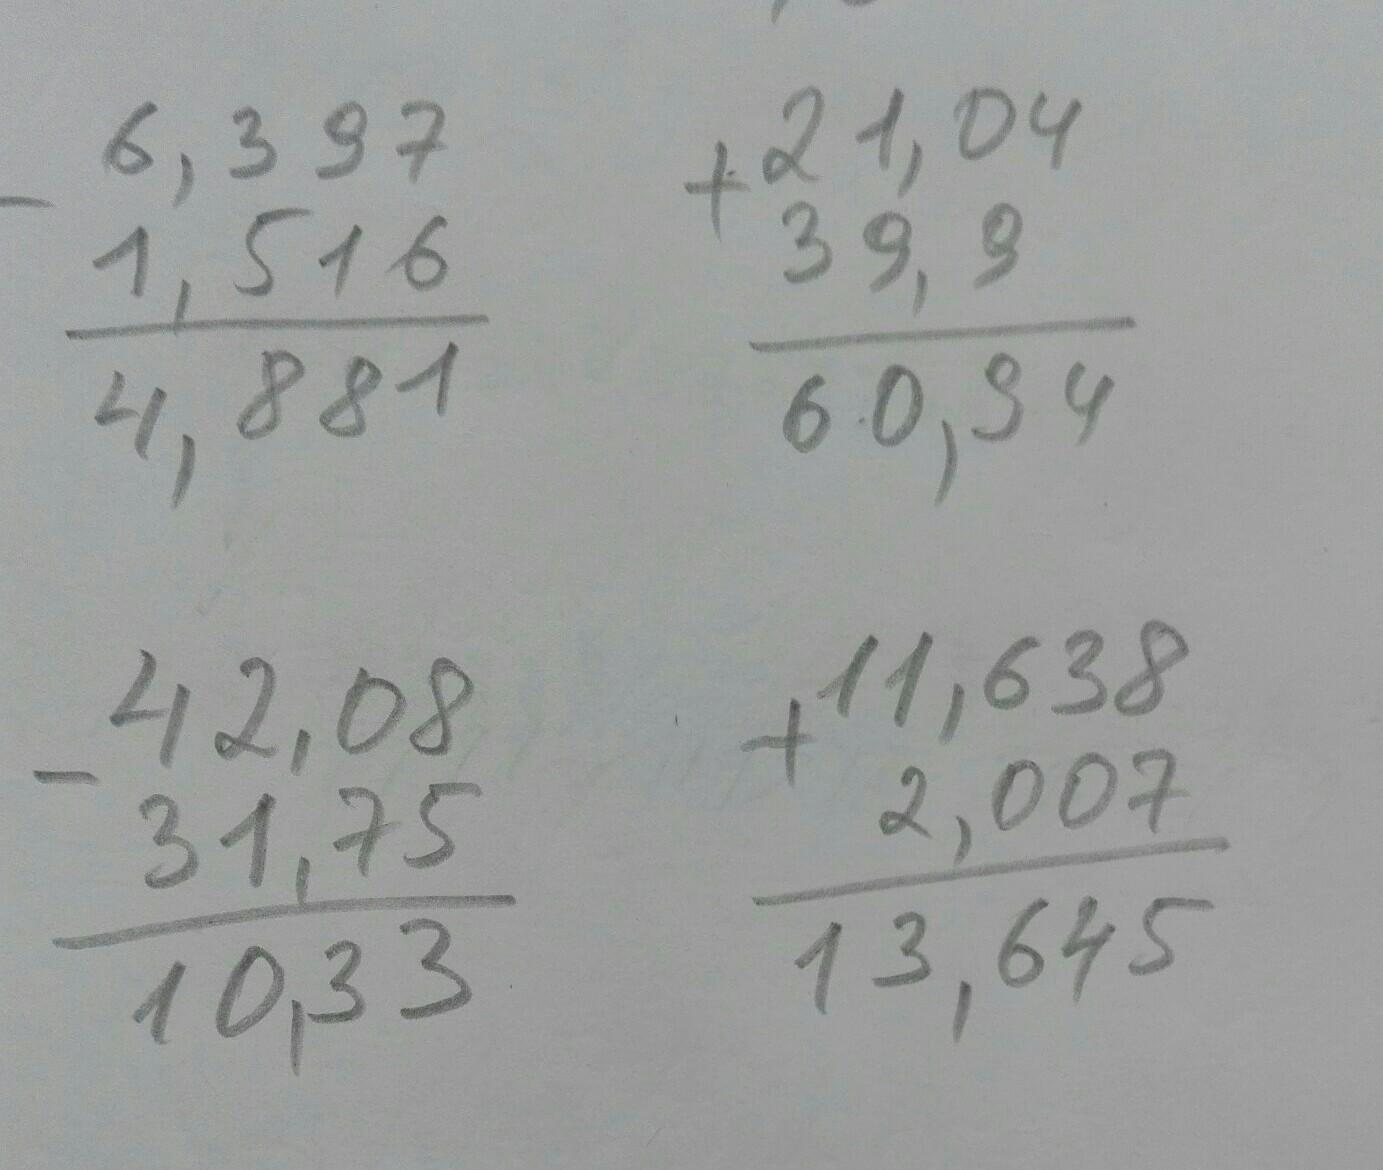 6,397
-
1,516
4,881
21,04
+
39,9
60,94
42,08
-
31,75
10,33
11,638
+
2,007
13,645